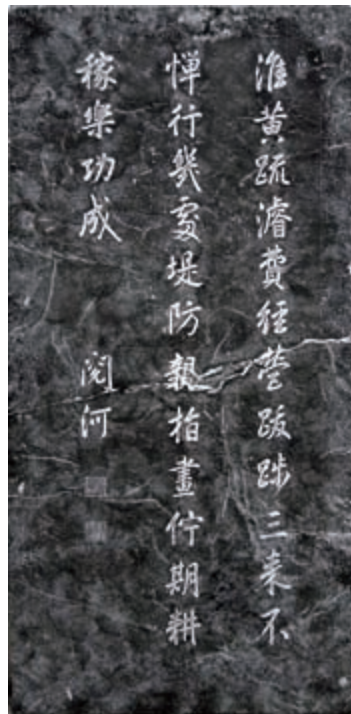 淮黃疏濬費經營跋涉三來不
憚行幾處堤防親指畫佇期耕
稼樂功成 閱河